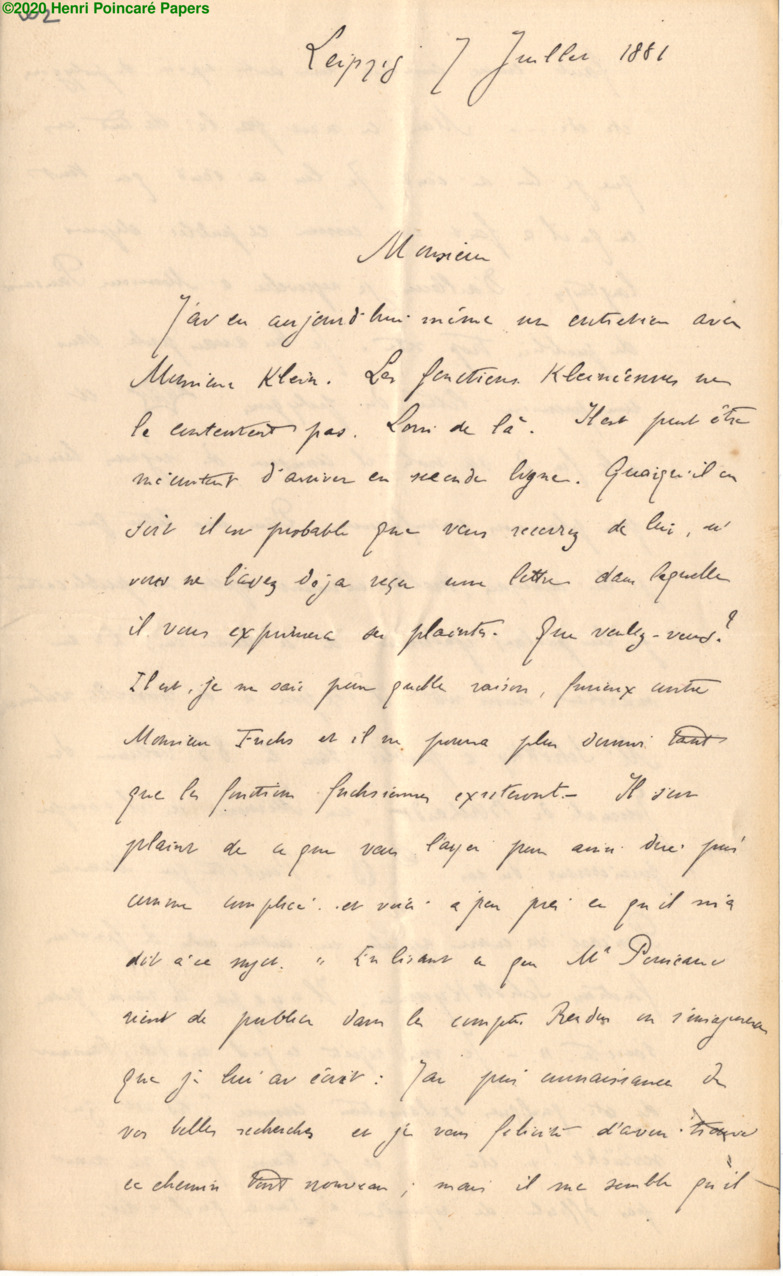 ©2020 Henri Poincaré Papers
Leipzig 7 Juillet 1881
Monsieur
J'ai eu aujourd'hui même un entretien avec
Monsieur Klein. Les fonctions Kleinéennes ne
le contentent pas. Loin de là. Il est peut être
mécontent d'arriver en seconde ligne. Quoiqu'il en
soit il est probable que vous recevrez de lui, si
vous ne l'avez déja reçu une lettre dans laquelle
il vous exprimera ses plaintes. Que voulez-vous?
Il est, je ne sais pour quelle raison, furieux contre
Monsieur Fuchs et il ne pourra plus dormir tant
que les fonctions fuchsiennes existeront. — Il s'en
plaint de ce que vous l'ayez pour ainsi dire pris
comme complice. et voici à peu près ce qu'il m'a
dit à ce sujet. " En lisant ce que Mr Poincaré
vient de publier dans les comptes Rendus on s'imaginera
que je lui ai écrit : J'ai pris connaissance de
vos belles recherches et je vous félicite d'avoir trouvé
ce chemin tout nouveau ; mais il me semble qu'il